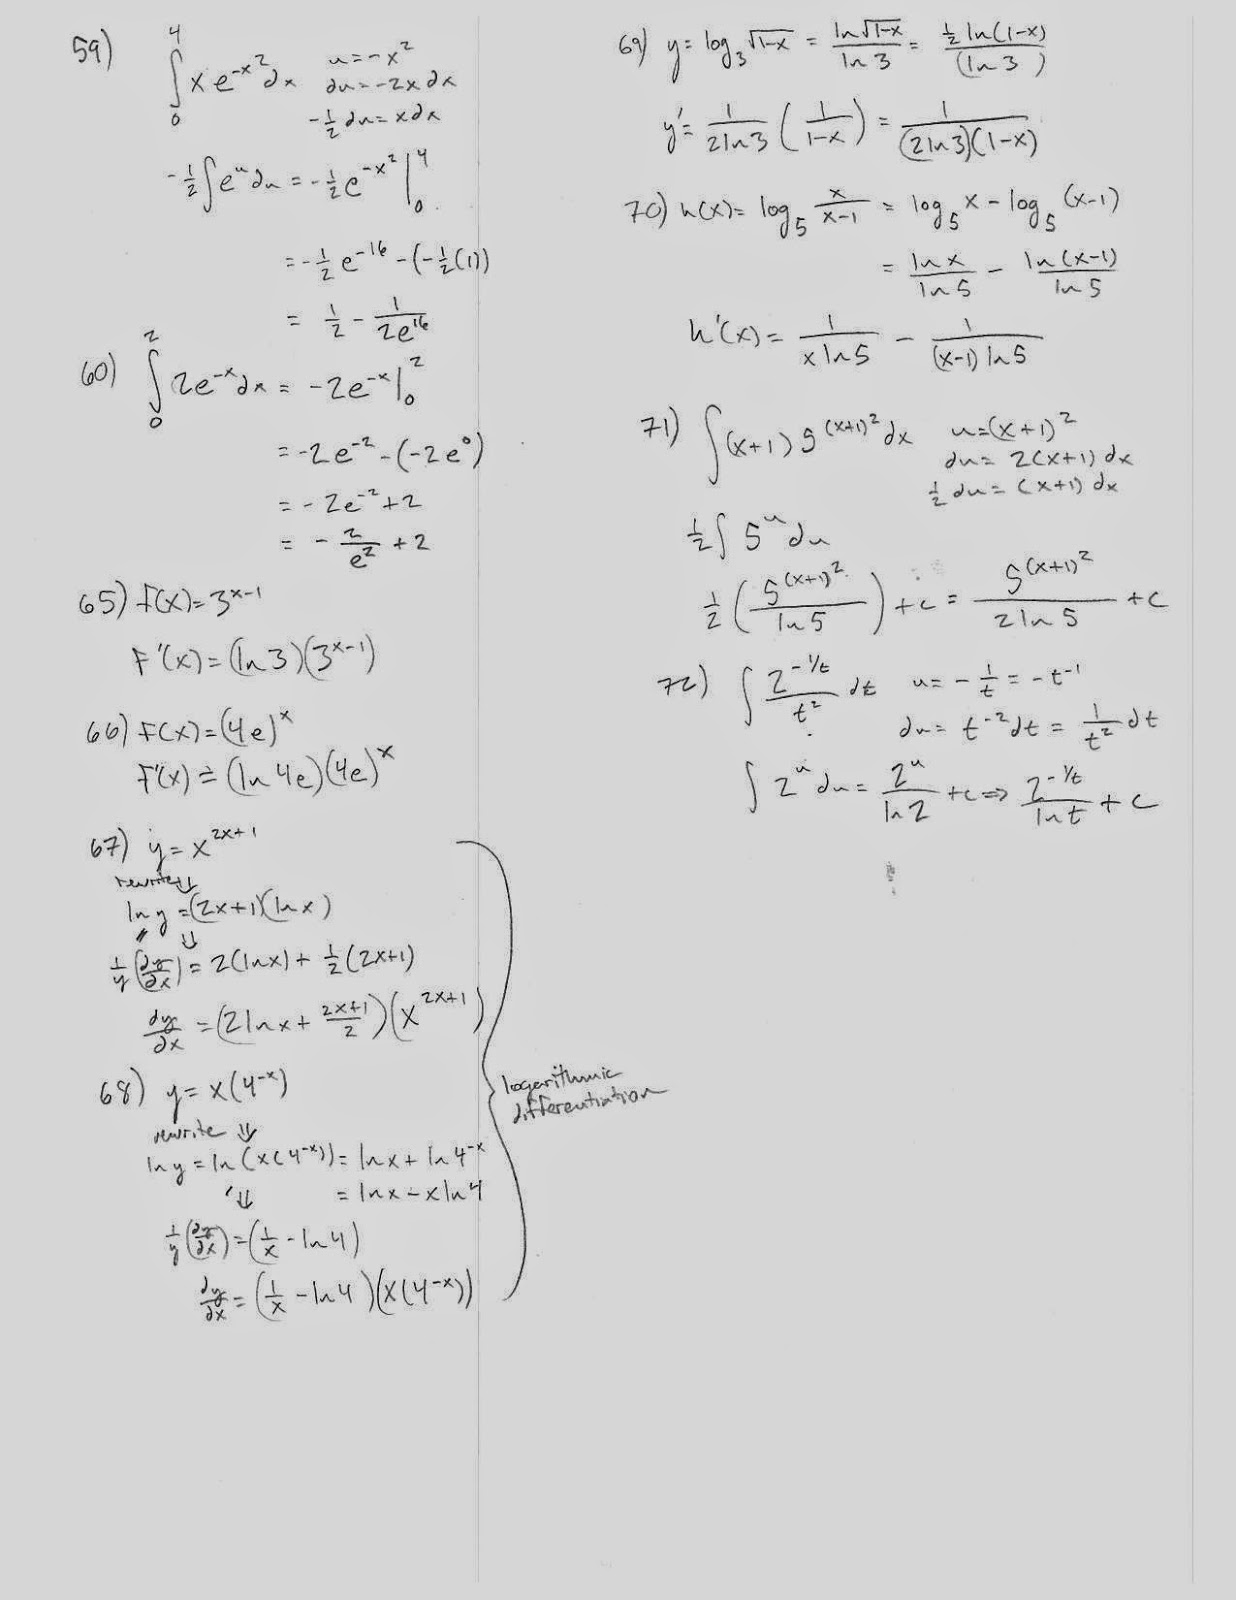 59) ∫₀⁴ x e^(-x²) dx    u = -x²
du = -2x dx
-½ du = x dx
-½ ∫ e^u du = -½ e^(-x²) |₀⁴
= -½ e^(-16) - (-½(1))
= ½ - 1/(2e^16)
60) ∫₀² 2e^(-x) dx = -2e^(-x) |₀²
= -2e^(-2) - (-2e^0)
= -2e^(-2) + 2
= - 2/e² + 2
65) f(x) = 3^(x-1)
F'(x) = (ln 3)(3^(x-1))
66) F(x) = (4e)^x
F'(x) = (ln 4e)(4e)^x
67) y = x^(2x+1)
rewrite ⇓
ln y = (2x+1)(ln x)
⇓
1/y (dy/dx) = 2(ln x) + ½(2x+1)
dy/dx = (2 ln x + (2x+1)/2)(x^(2x+1))
68) y = x(4^(-x))
rewrite ⇓
ln y = ln(x(4^(-x))) = ln x + ln 4^(-x)
⇓ = ln x - x ln 4
1/y (dy/dx) = (1/x - ln 4)
dy/dx = (1/x - ln 4)(x(4^(-x)))
logarithmic
differentiation
69) y = log₃ √(1-x) = ln √(1-x) / ln 3 = ½ ln(1-x) / (ln 3)
y' = 1/(2 ln 3) (1/(1-x)) = 1/((2 ln 3)(1-x))
70) h(x) = log₅ x/(x-1) = log₅ x - log₅ (x-1)
= ln x / ln 5 - ln(x-1) / ln 5
h'(x) = 1/(x ln 5) - 1/((x-1) ln 5)
71) ∫ (x+1) 5^((x+1)²) dx    u = (x+1)²
du = 2(x+1) dx
½ du = (x+1) dx
½ ∫ 5^u du
½ (5^((x+1)²) / ln 5) + c = 5^((x+1)²) / (2 ln 5) + c
72) ∫ 2^(-1/t) / t² dt    u = - 1/t = -t^(-1)
du = t^(-2) dt = 1/t² dt
∫ 2^u du = 2^u / ln 2 + c ⇒ 2^(-1/t) / ln t + c